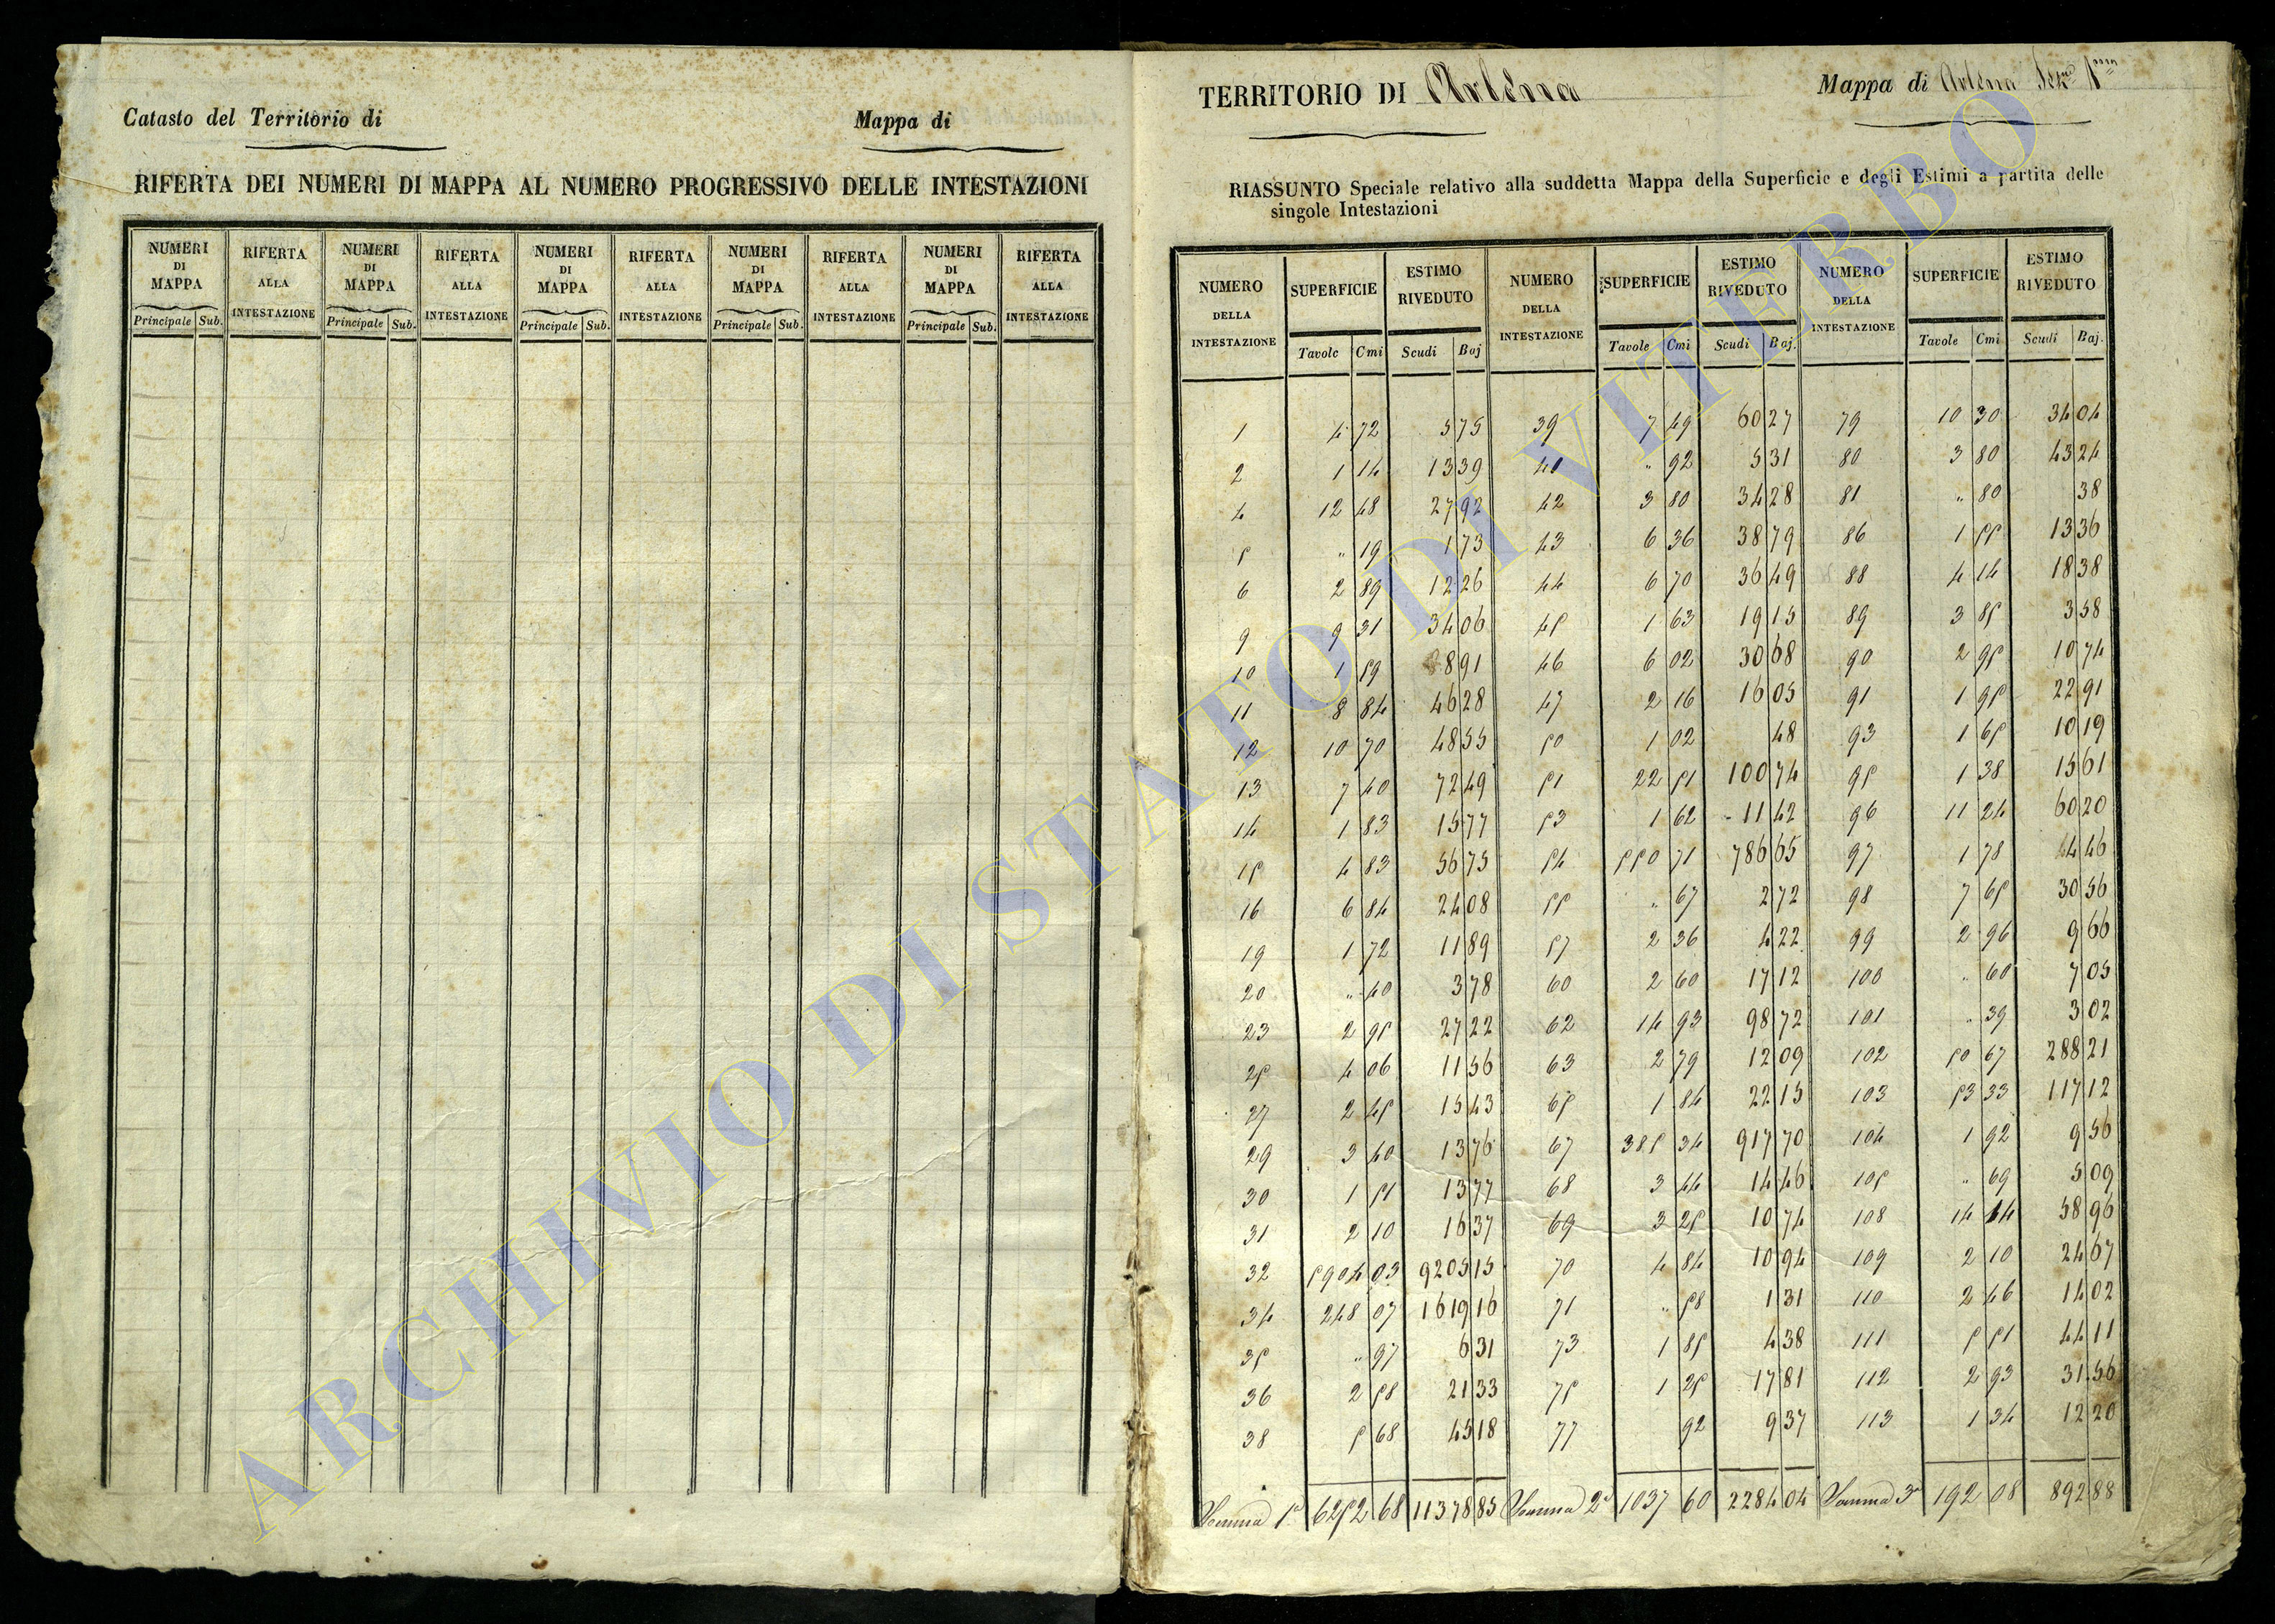 Catasto del Territorio di Mappa di
RIFERTA DEI NUMERI DI MAPPA AL NUMERO PROGRESSIVO DELLE INTESTAZIONI
NUMERI DI MAPPA RIFERTA ALLA INTESTAZIONE NUMERI DI MAPPA RIFERTA ALLA INTESTAZIONE NUMERI DI MAPPA RIFERTA ALLA INTESTAZIONE NUMERI DI MAPPA RIFERTA ALLA INTESTAZIONE NUMERI DI MAPPA RIFERTA ALLA INTESTAZIONE
Principale Sub. Principale Sub. Principale Sub. Principale Sub. Principale Sub.
TERRITORIO DI Arlena Mappa di Arlena
RIASSUNTO Speciale relativo alla suddetta Mappa della Superficie e degli Estimi a partita delle
singole Intestazioni
NUMERO DELLA INTESTAZIONE SUPERFICIE ESTIMO RIVEDUTO NUMERO DELLA INTESTAZIONE SUPERFICIE ESTIMO RIVEDUTO NUMERO DELLA INTESTAZIONE SUPERFICIE ESTIMO RIVEDUTO
Tavole Cmi Scudi Baj Tavole Cmi Scudi Baj. Tavole Cmi Scudi Baj.
1 4 72 5 75 39 7 49 60 27 79 10 30 34 04
2 1 14 13 39 40 " 92 5 31 80 3 80 43 24
4 12 48 27 92 42 3 80 34 28 81 " 80 38
5 " 19 1 73 43 6 36 38 79 86 1 55 13 36
6 2 89 12 26 44 6 70 36 49 88 4 14 18 38
9 9 31 34 06 45 1 63 19 15 89 3 85 3 58
10 1 59 8 91 46 6 02 30 68 90 2 95 10 74
11 8 84 46 28 47 2 16 16 05 91 1 95 22 91
12 10 70 48 55 50 1 02 48 93 1 65 10 19
13 7 40 72 49 51 22 51 100 74 95 1 38 15 61
14 1 83 15 77 53 1 62 11 42 96 11 24 60 20
15 4 83 56 75 54 550 71 786 65 97 1 78 44 46
16 6 84 24 08 55 " 67 2 72 98 7 65 30 56
19 1 72 11 89 57 2 36 4 22 99 2 96 9 66
20 " 40 3 78 60 2 60 17 12 100 " 60 7 05
23 2 95 27 22 62 14 93 98 72 101 " 39 3 02
25 4 06 11 56 63 2 79 12 09 102 50 67 288 21
27 2 45 15 43 65 1 84 22 15 103 53 33 117 12
29 3 40 13 76 67 385 34 917 70 104 1 92 9 56
30 1 51 13 77 68 3 44 14 46 105 " 69 5 09
31 2 10 16 37 69 3 25 10 74 108 14 44 58 96
32 5904 03 9205 15 70 4 84 10 94 109 2 10 24 67
34 248 07 1619 16 71 " 58 1 31 110 2 46 14 02
35 " 97 6 31 73 1 85 4 38 111 5 51 44 11
36 2 58 21 33 75 1 25 17 81 112 2 93 31 56
38 5 68 45 18 77 92 9 37 113 1 34 12 20
Somma 1a 6252 68 11378 85 Somma 2a 1037 60 2284 04 Somma 3a 192 08 892 88
ARCHIVIO DI STATO DI VITERBO